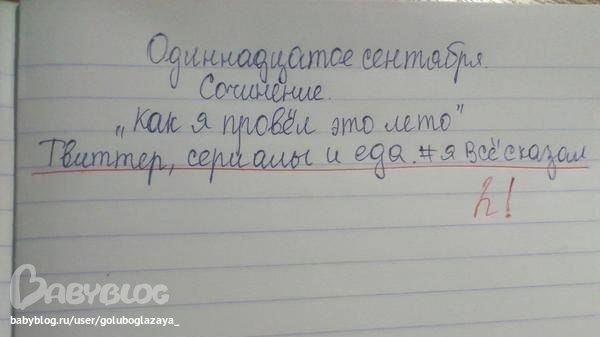 Одиннадцатое сентября.
Сочинение.
„Как я провёл это лето”
Твиттер, сериалы и еда. #я всё сказал
2!
BABYBLOG
babyblog.ru/user/goluboglazaya_